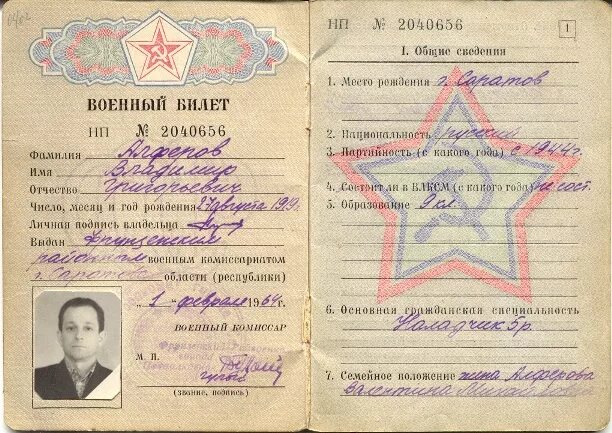 ВОЕННЫЙ БИЛЕТ
НП № 2040656
Фамилия Алферов
Имя Владимир
Отчество Григорьевич
Число, месяц и год рождения 27 августа 1919г.
Личная подпись владельца
Выдан Фрунзенским
районным военным комиссариатом
г. Саратова области (республики)
"1" февраля 1964г.
ВОЕННЫЙ КОМИССАР
М. П.
(звание, подпись)
НП № 2040656
1
I. Общие сведения
1. Место рождения г. Саратов
2. Национальность русский
3. Партийность (с какого года) с 1944г.
4. Состоял ли в ВЛКСМ (с какого года) не сост.
5. Образование 9 кл.
6. Основная гражданская специальность
Наладчик 5р.
7. Семейное положение жена Алферова
Валентина Михайловна